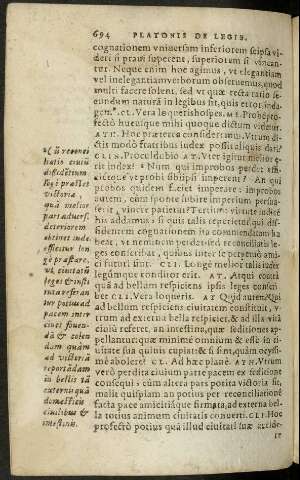 694 PLATONIS DE LEGIB.
cognationem vniuersam inferiorem seipsa vi-
deri si praui superent, superiorem si vincan-
tur. Neque enim hoc agimus, vt elegantiam
vel inelegantiam verborum obseruemus, quod
multi facere solent, sed vt quæ recta ratio se-
cundum naturã in legibus sit, quis error, inda-
gem⁹. CL. Vera loqueris hospes. ME. Prope
fectò hucusque mihi quoque dictum videtur.
ATH. Hoc præterea consideremus. Vtrum di-
ctis modò fratribus iudex possit aliquis dari?
CLI. Procul dubio. AT. Vter igitur melior e-
rit iudex? Num qui improbos perdit: effi-
cietque vt probi sibi ipsi imperent? An qui
probos quidem faciet imperare: improbos
autem, cùm sponte subire imperium
viuere patiatur? Tertium virtute iudicẽ
his addamus: si quis talis reperietur qui dif-
sidentem cognationem ita commendans
vt neminem perdat: sed reconciliatis le-
ges conscribat, quibus inter se perpetuò ami-
ci futuri sint. CLI. Longè melior talis iudex
legumque conditor erit. AT. Atqui contrà
quã ad bellum respiciens ipsis leges conscri-
bet. CLI. Vera loqueris. AT. Quid autem? Qui
ciuitatem constituit, v-
trum ad externa bella respiciet, & ad illa vitã
ciuiũ referet, an intestina, quæ seditiones ap-
pellantur: quæ minimè omnium & esse in ci-
uitate sua quiuis cupiat: & si sint, quàm ocyssi-
mè aboleri? CL. Ad hæc planè. AT. Vtrum
verò perdita ciuium parte pacem ex seditione
consequi: cùm altera pars potita victoria sit,
malit quispiam an potius per reconciliationẽ
facta pace amicitiáque firmata, ad externa bel-
la totius animum ciuitatis conuerti. CLI. Hoc
profectò potius quàm illud ciuitati suæ accide-
re
Quòd reconci-
liatio ciuiũ
dissidentium
longè præstet
victoriæ,
quã melior
pars aduersus
deteriorem
obtinet: inde
efficitur lon-
gè præstare,
vt ciuitatũ
leges & insti-
tuta referan-
tur potius ad
pacem inter
ciues fouen-
dã & colen-
dam quàm
ad victoriã
reportãdam
in bellis tã
externis quã
domesticis
ciuilibus &
intestinis.